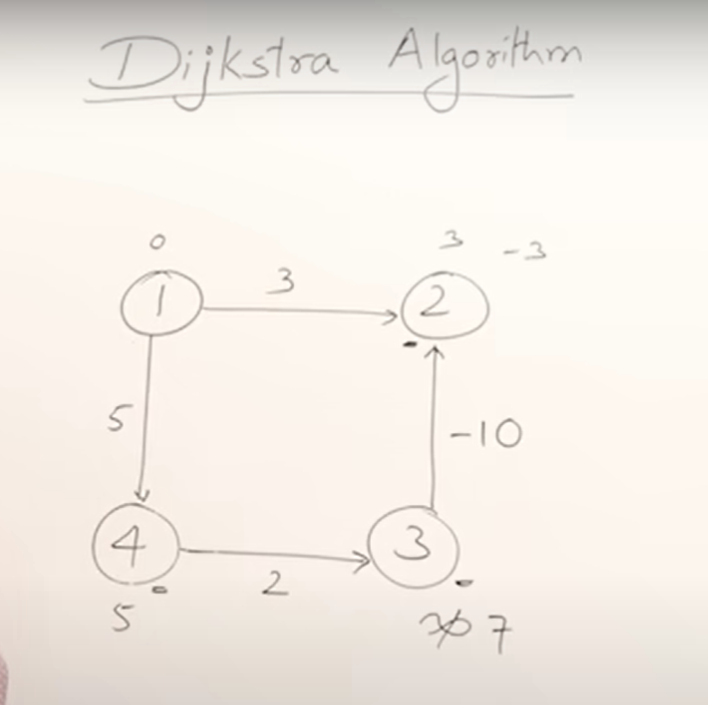 Dijkstra Algorithm
0
3 -3
3
1
2
5
-10
4
3
2
5
∞ 7